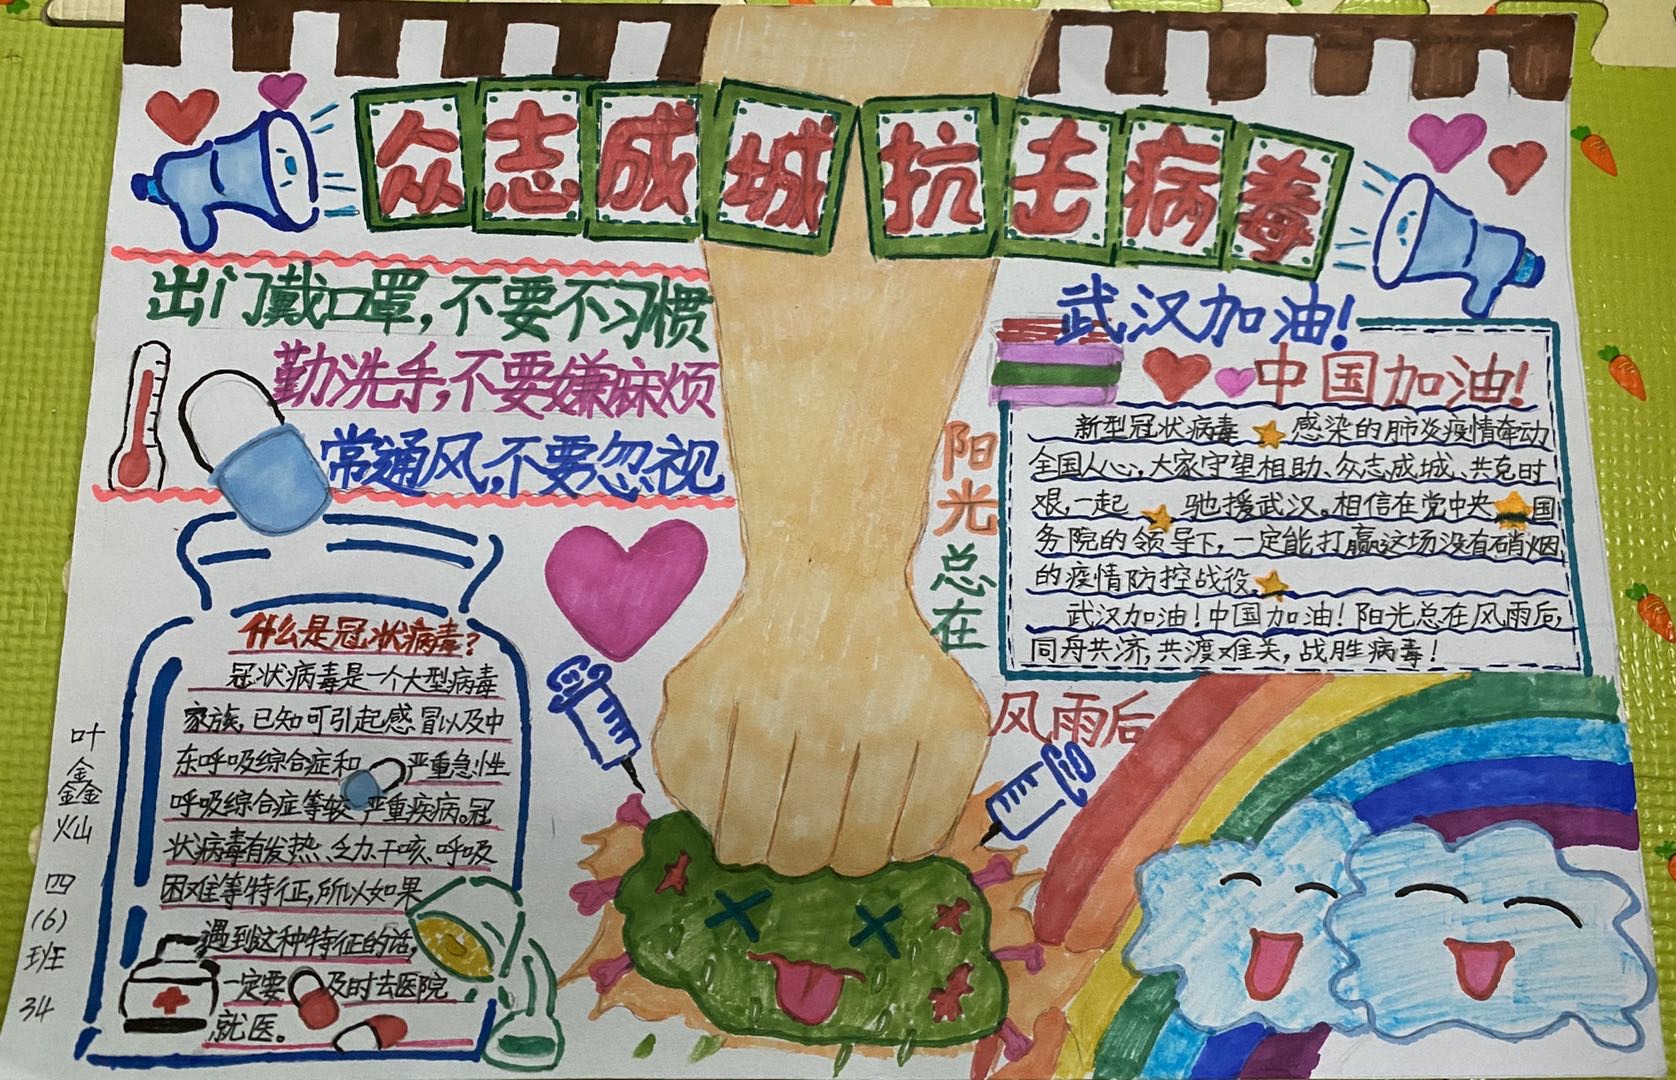 众志成城抗击病毒
出门戴口罩,不要不习惯
勤洗手,不要嫌麻烦
常通风,不要忽视
什么是冠状病毒?
冠状病毒是一个大型病毒
家族,已知可引起感冒以及中
东呼吸综合症和严重急性
呼吸综合症等较严重疾病。冠
状病毒有发热、乏力、干咳、呼吸
困难等特征,所以如果
遇到这种特征的话,
一定要及时去医院
就医。
叶鑫灿
四(6)班
34
阳光总在
风雨后
武汉加油!
中国加油!
新型冠状病毒感染的肺炎疫情牵动
全国人心,大家守望相助、众志成城、共克时
艰,一起驰援武汉。相信在党中央国
务院的领导下,一定能打赢这场没有硝烟
的疫情防控战役。
武汉加油!中国加油!阳光总在风雨后,
同舟共济,共渡难关,战胜病毒!